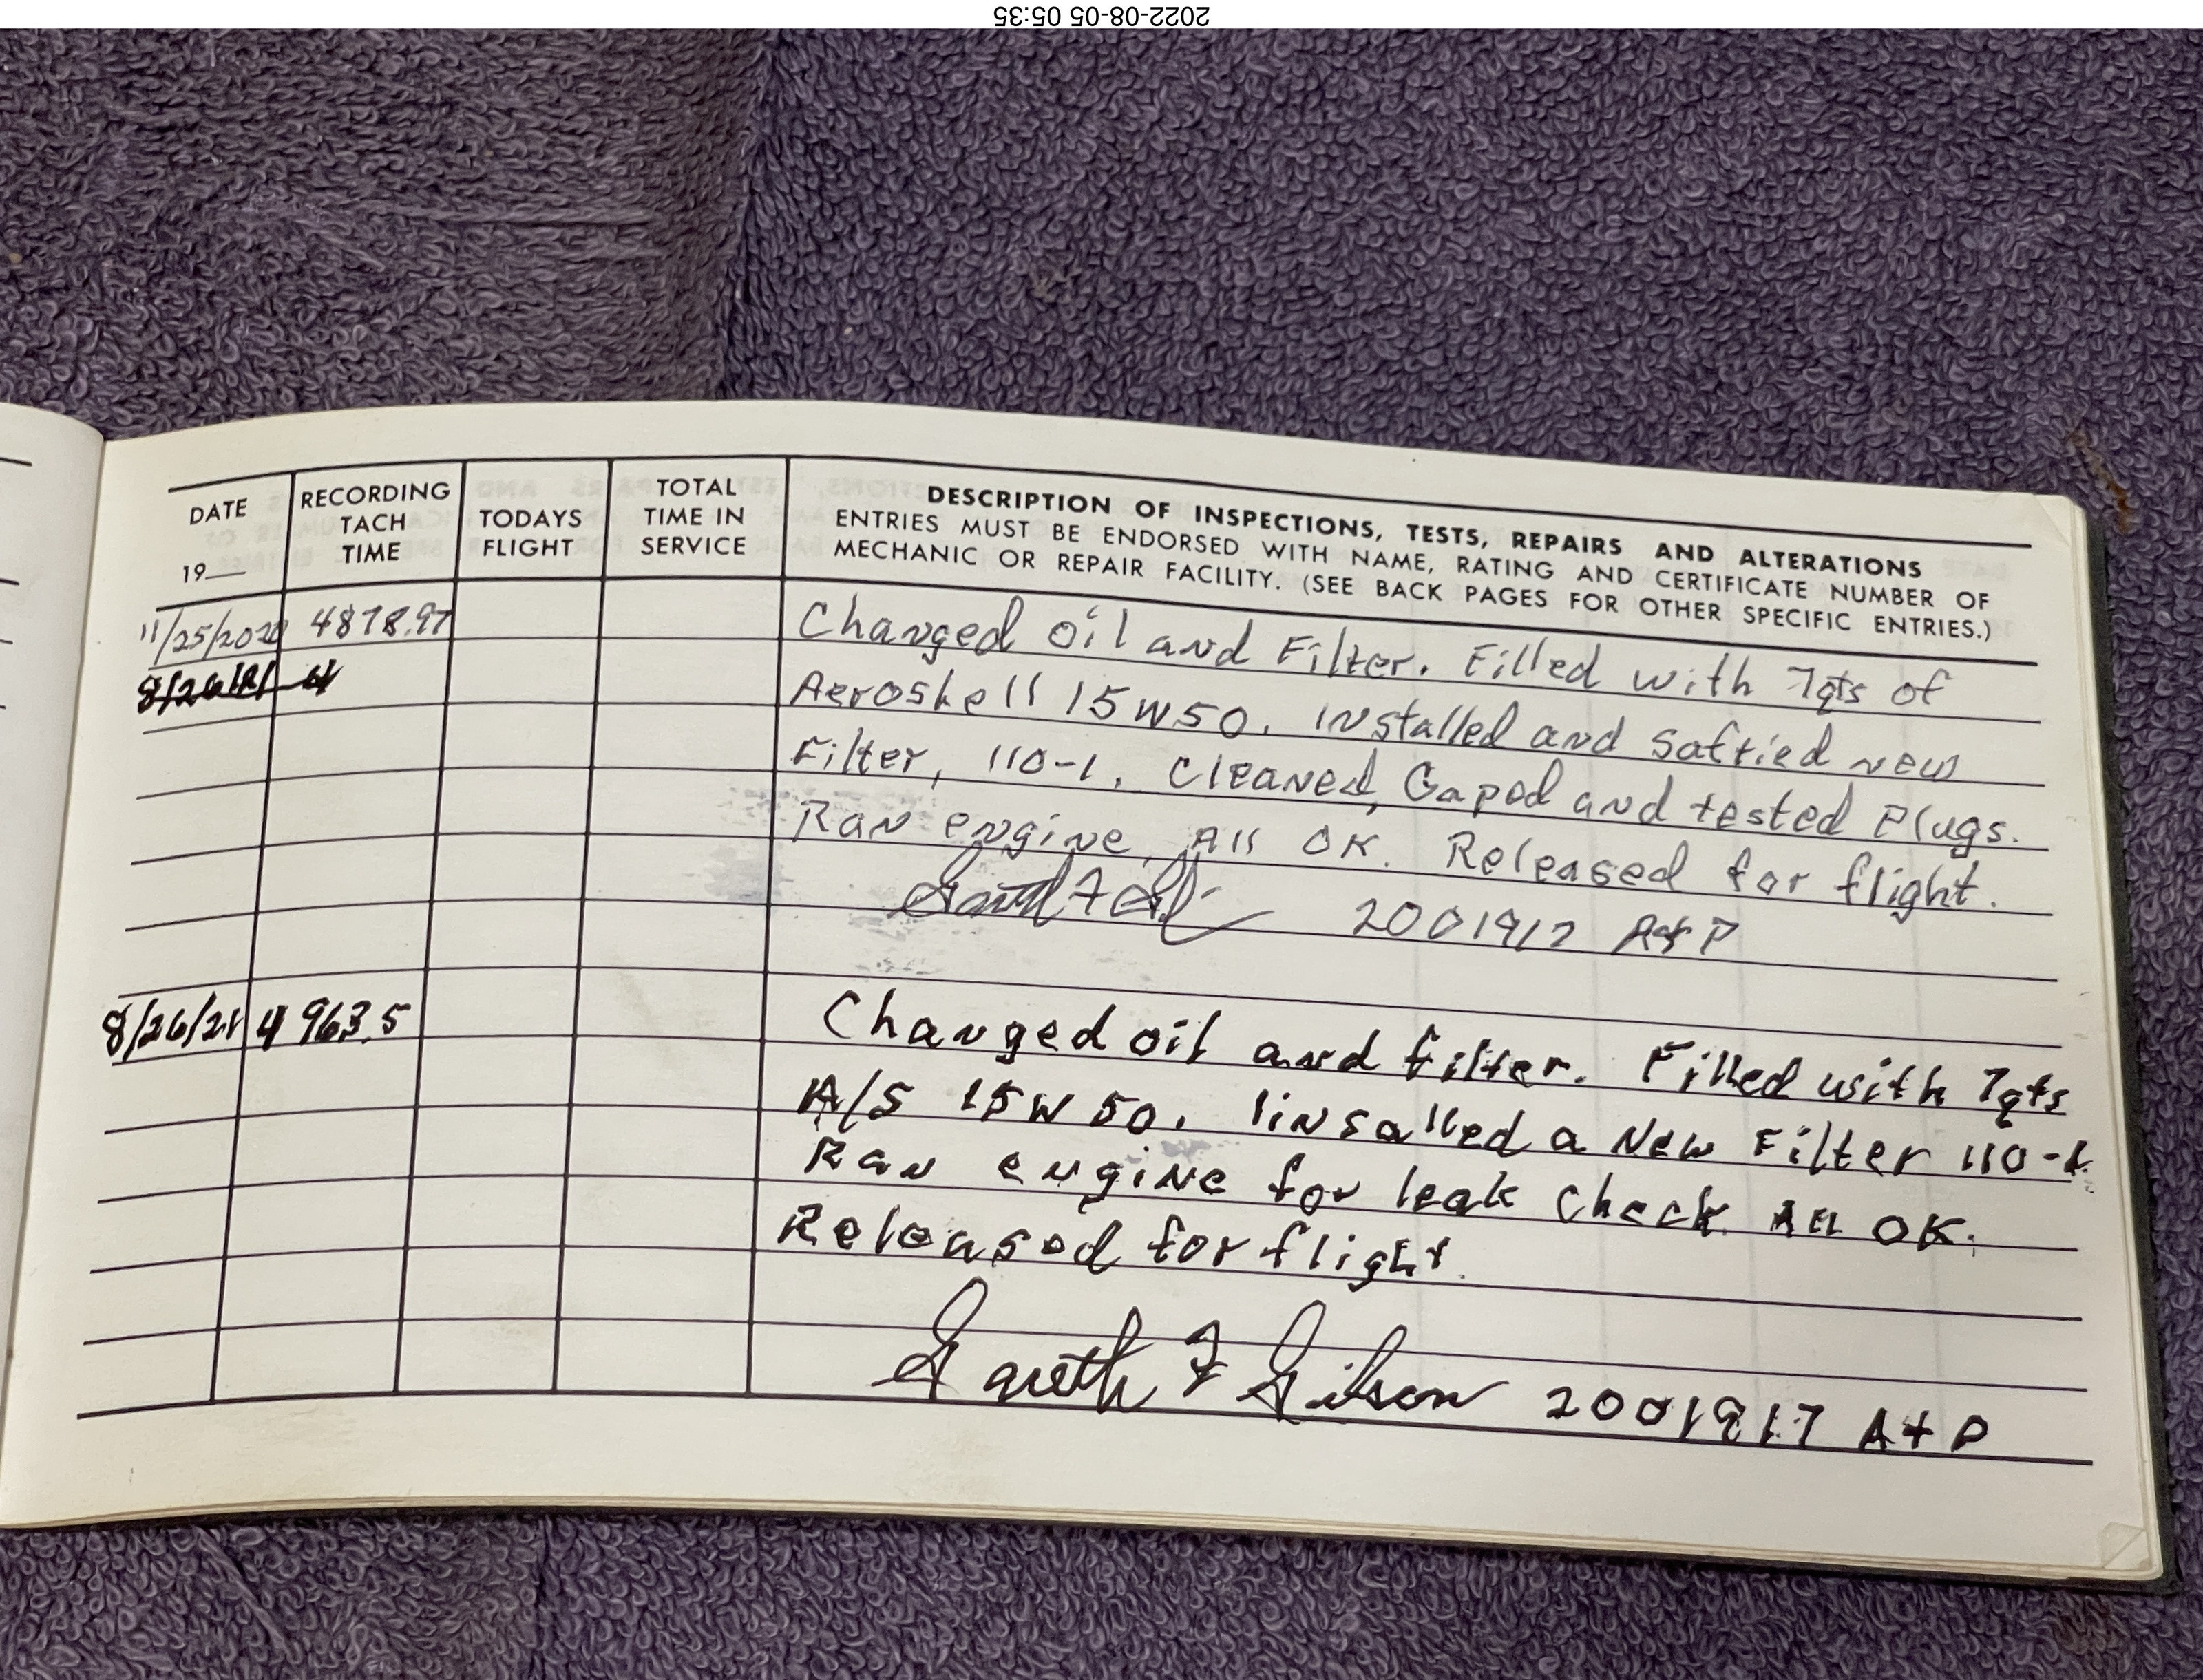 2022-08-05 05:35
DATE
19__
RECORDING
TACH
TIME
TODAYS
FLIGHT
TOTAL
TIME IN
SERVICE
DESCRIPTION OF INSPECTIONS, TESTS, REPAIRS AND ALTERATIONS
ENTRIES MUST BE ENDORSED WITH NAME, RATING AND CERTIFICATE NUMBER OF
MECHANIC OR REPAIR FACILITY. (SEE BACK PAGES FOR OTHER SPECIFIC ENTRIES.)
11/25/2020 4878.97 Changed oil and Filter. Filled with 7qts of
8/26/21 4 Aeroshell 15W50. Installed and saftied new
Filter, 110-1. Cleaned, Gaped and tested Plugs.
Ran engine. All OK. Released for flight.
2001917 A+P
8/26/21 4963.5 Changed oil and filter. Filled with 7qts
A/S 15W50. Iinsalled a New Filter 110-1.
Ran engine for leak check All OK.
Released for flight.
Gareth F Gilson 2001917 A+P